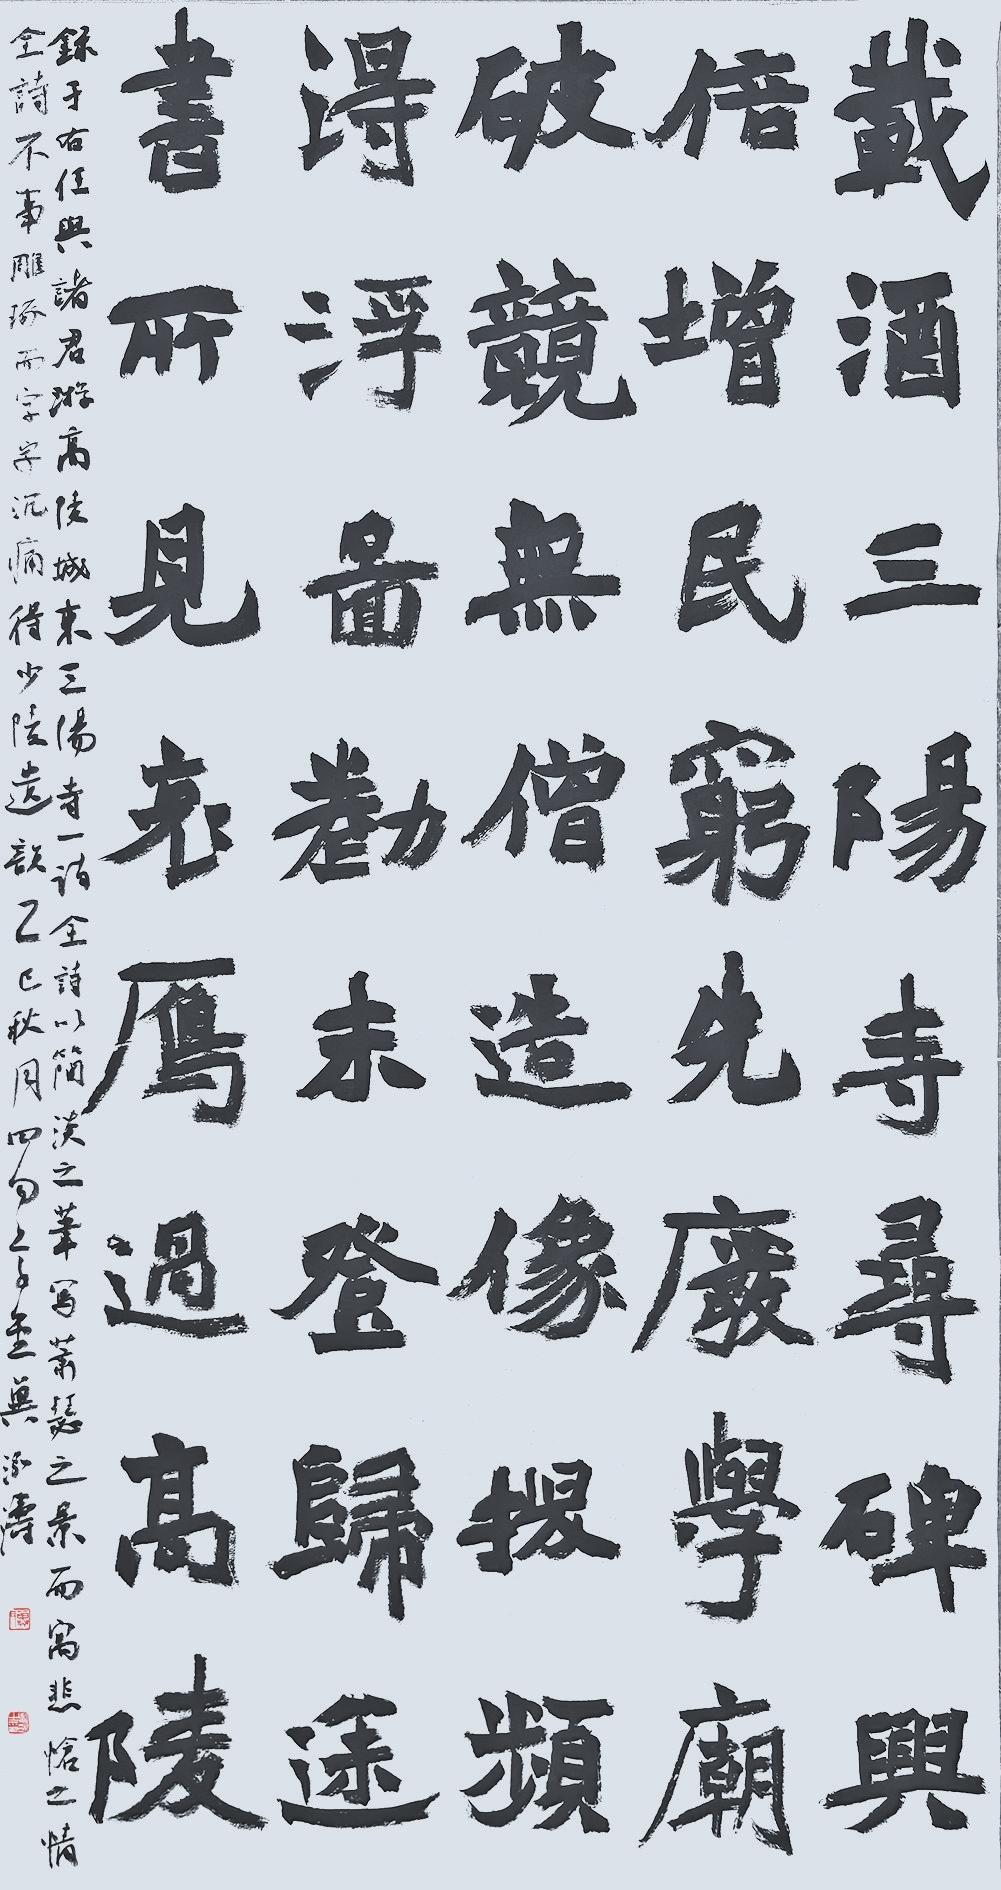 載酒三陽寺尋碑興
倍增民窮先廢學廟
破競無僧造像搜頻
得浮圖勸未登歸途
書所見哀鴈過高陵
錄于右任與諸君游高陵城東三陽寺一詩全詩以簡淡之筆寫蕭瑟之景而寓悲愴之情
全詩不事雕琢而字字沉痛得少陵遺韻乙巳秋月四句之子